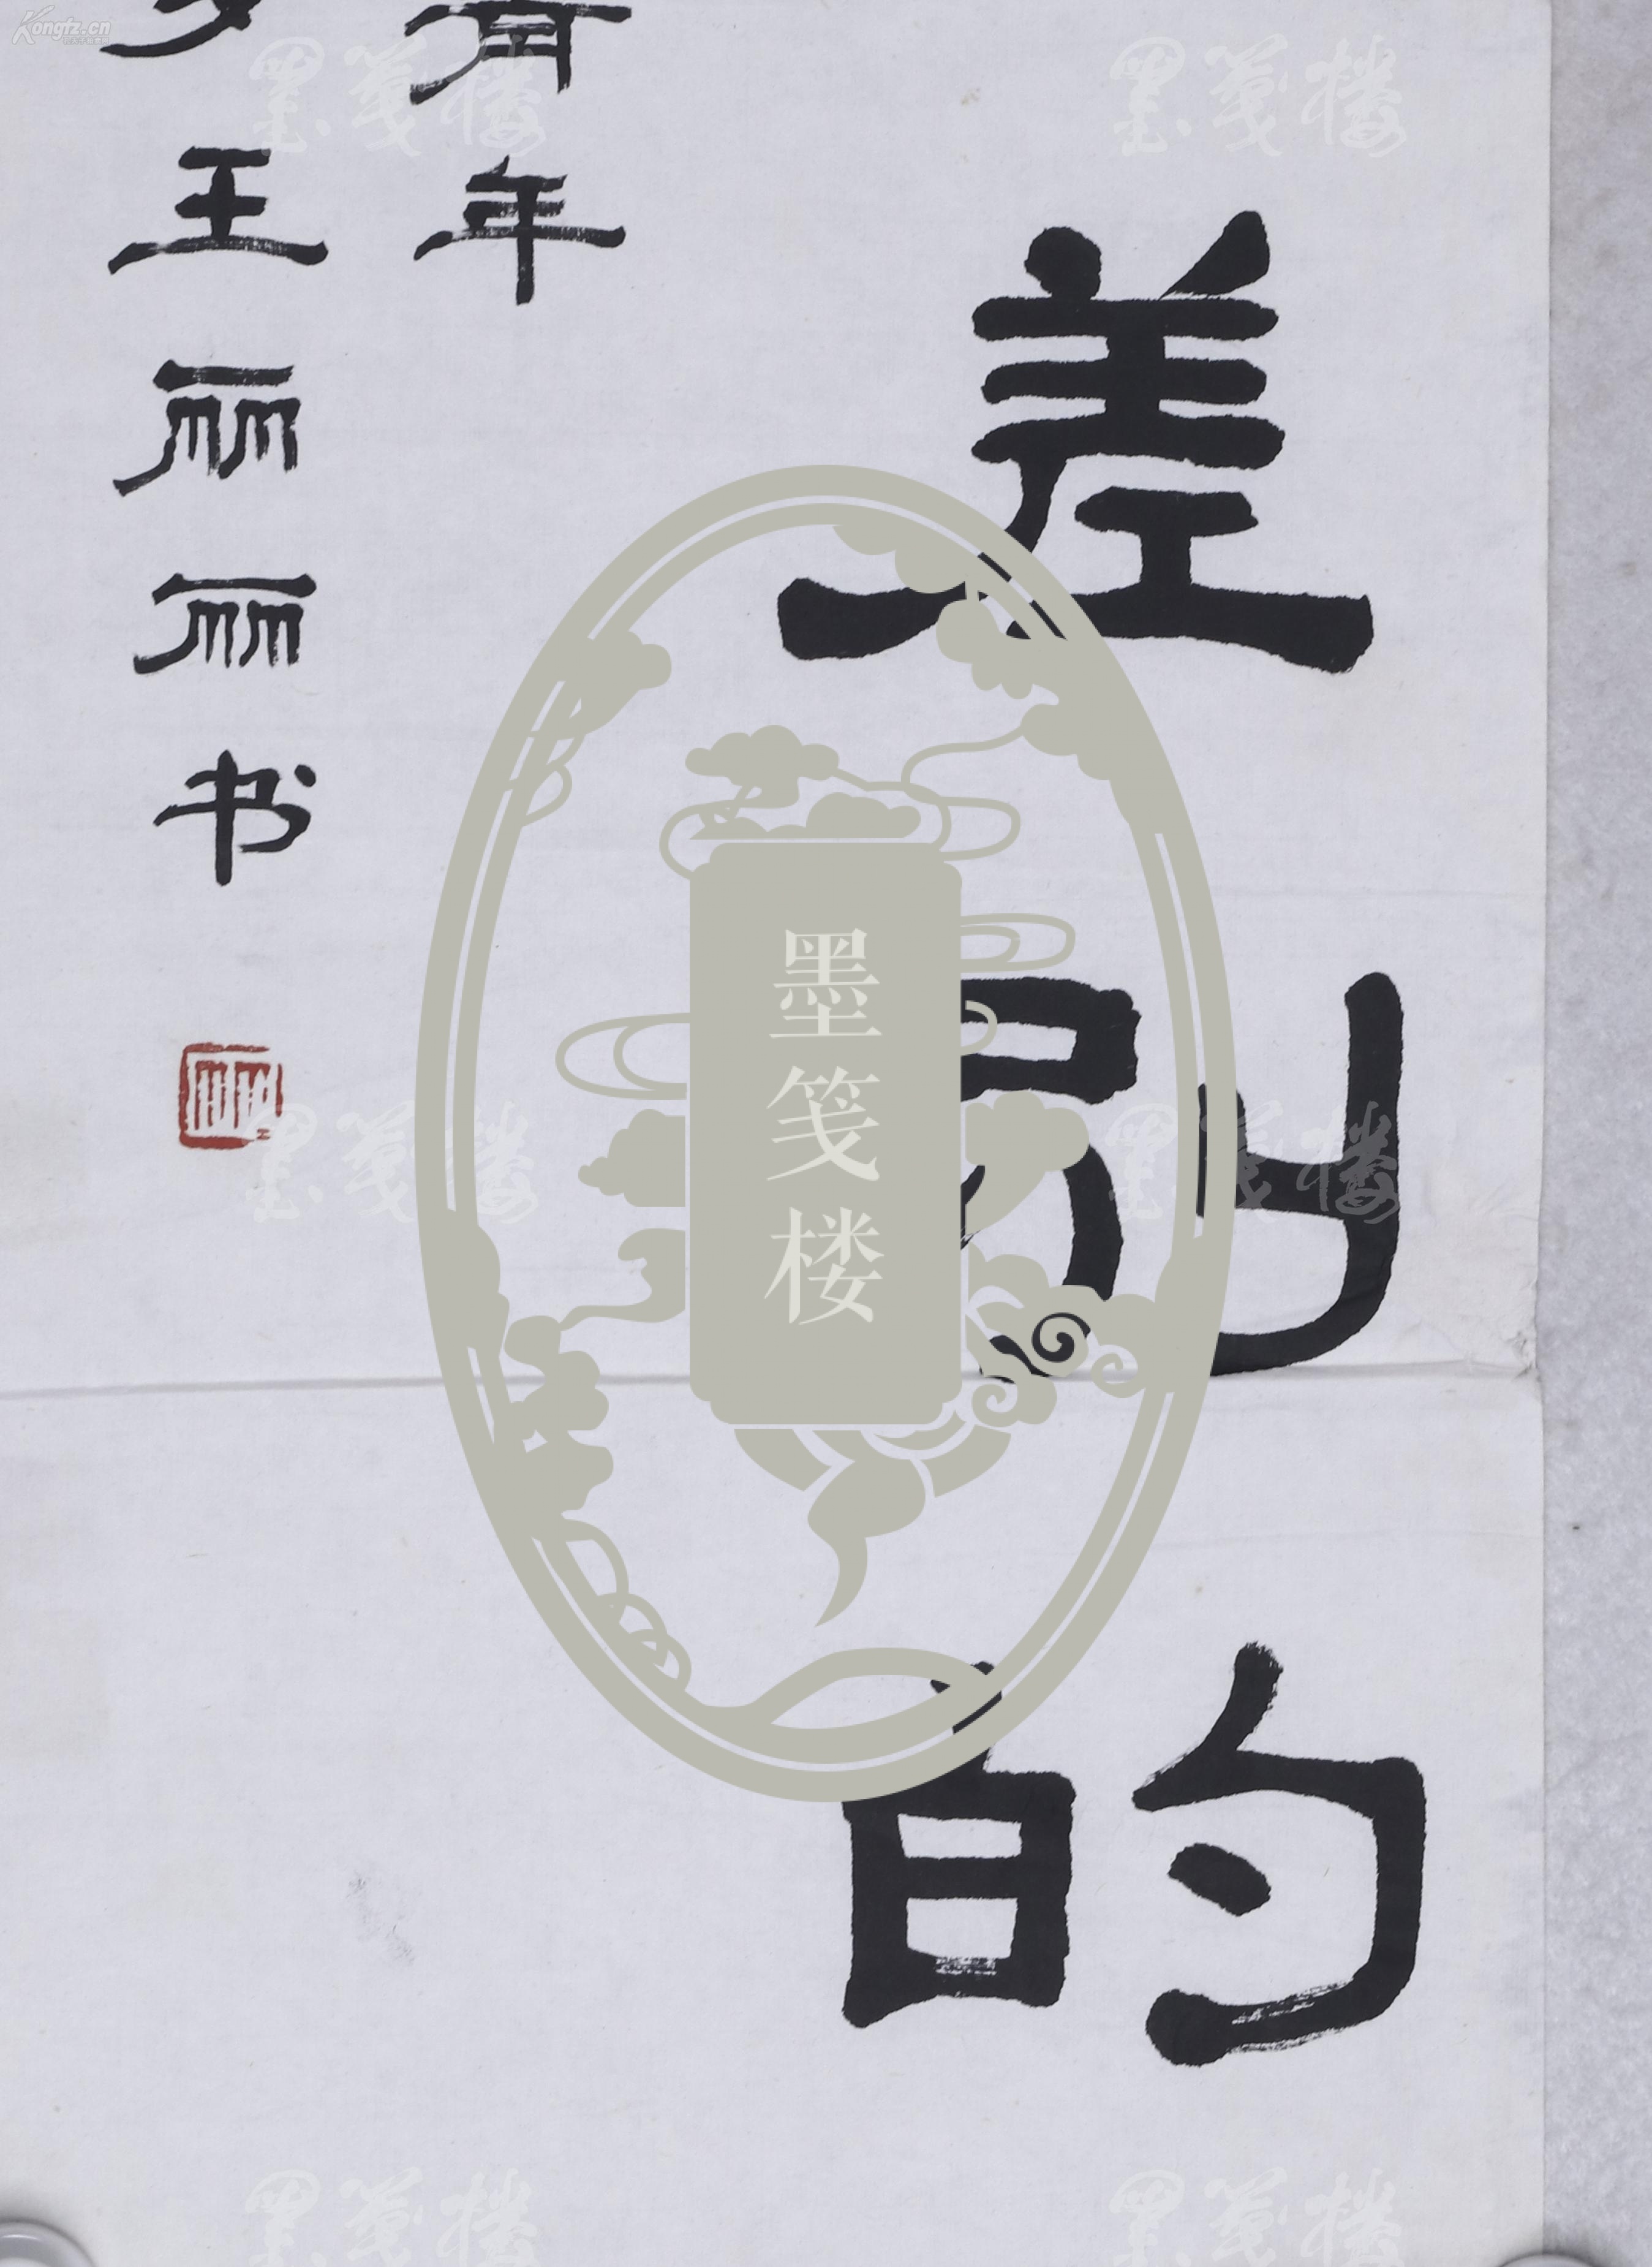 差别的
有年
王丽丽书
墨笺楼
Kongfz.cn
墨笺楼
墨笺楼
墨笺楼
墨笺楼
墨笺楼
墨笺楼